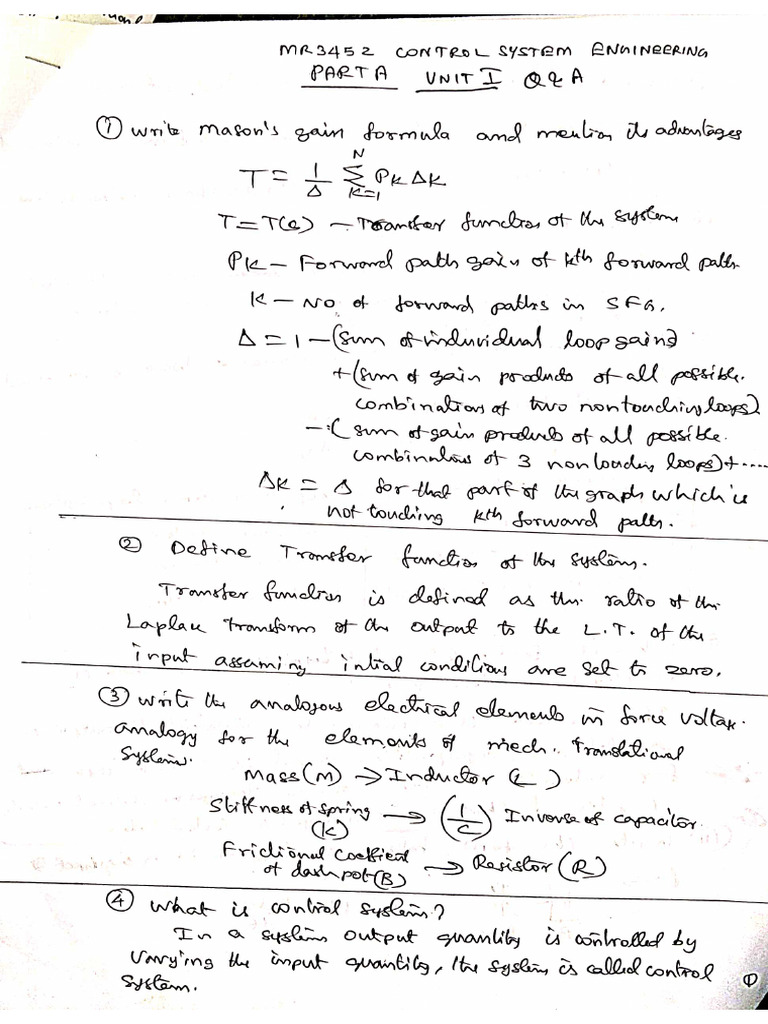 MR3452 CONTROL SYSTEM ENGINEERING
PART A UNIT I Q & A
① Write Mason's gain formula and mention its advantages
T = 1/Δ N Σ K=1 PK ΔK
T = T(s) – Transfer function of the system
PK – Forward path gain of kth forward path
K – No of forward paths in SFG.
Δ = 1 – (sum of individual loop gains)
+ (sum of gain products of all possible
combinations of two nontouching loops)
– (sum of gain products of all possible
combinations of 3 nontouching loops) + ....
ΔK = Δ for that part of the graph which is
not touching kth forward path.
② Define Transfer function of the system.
Transfer function is defined as the ratio of the
Laplace transform of the output to the L.T. of the
input assuming intial conditions are set to zero.
③ Write the analogous electrical elements in force voltage
analogy for the elements of mech. Translational
System.
Mass (M) → Inductor (L)
Stiffness of spring (K) → (1/C) Inverse of capacitor
Frictional coefficient of dashpot (B) → Resistor (R)
④ What is control system?
In a system output quantity is controlled by
varying the input quantity, the system is called control
system.
①